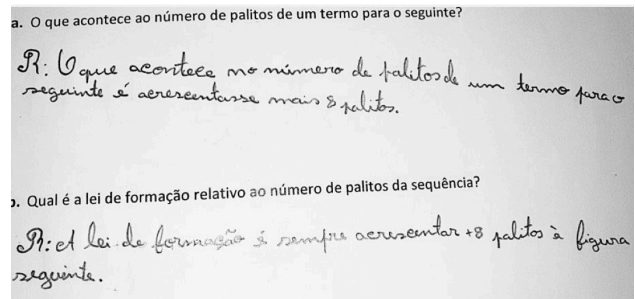 a. O que acontece ao número de palitos de um termo para o seguinte?
R: O que acontece no número de palitos de um termo para o
seguinte é acrescentasse mais 8 palitos.
b. Qual é a lei de formação relativo ao número de palitos da sequência?
R: A lei de formação é sempre acruscentar +8 palitos à figura
seguinte.